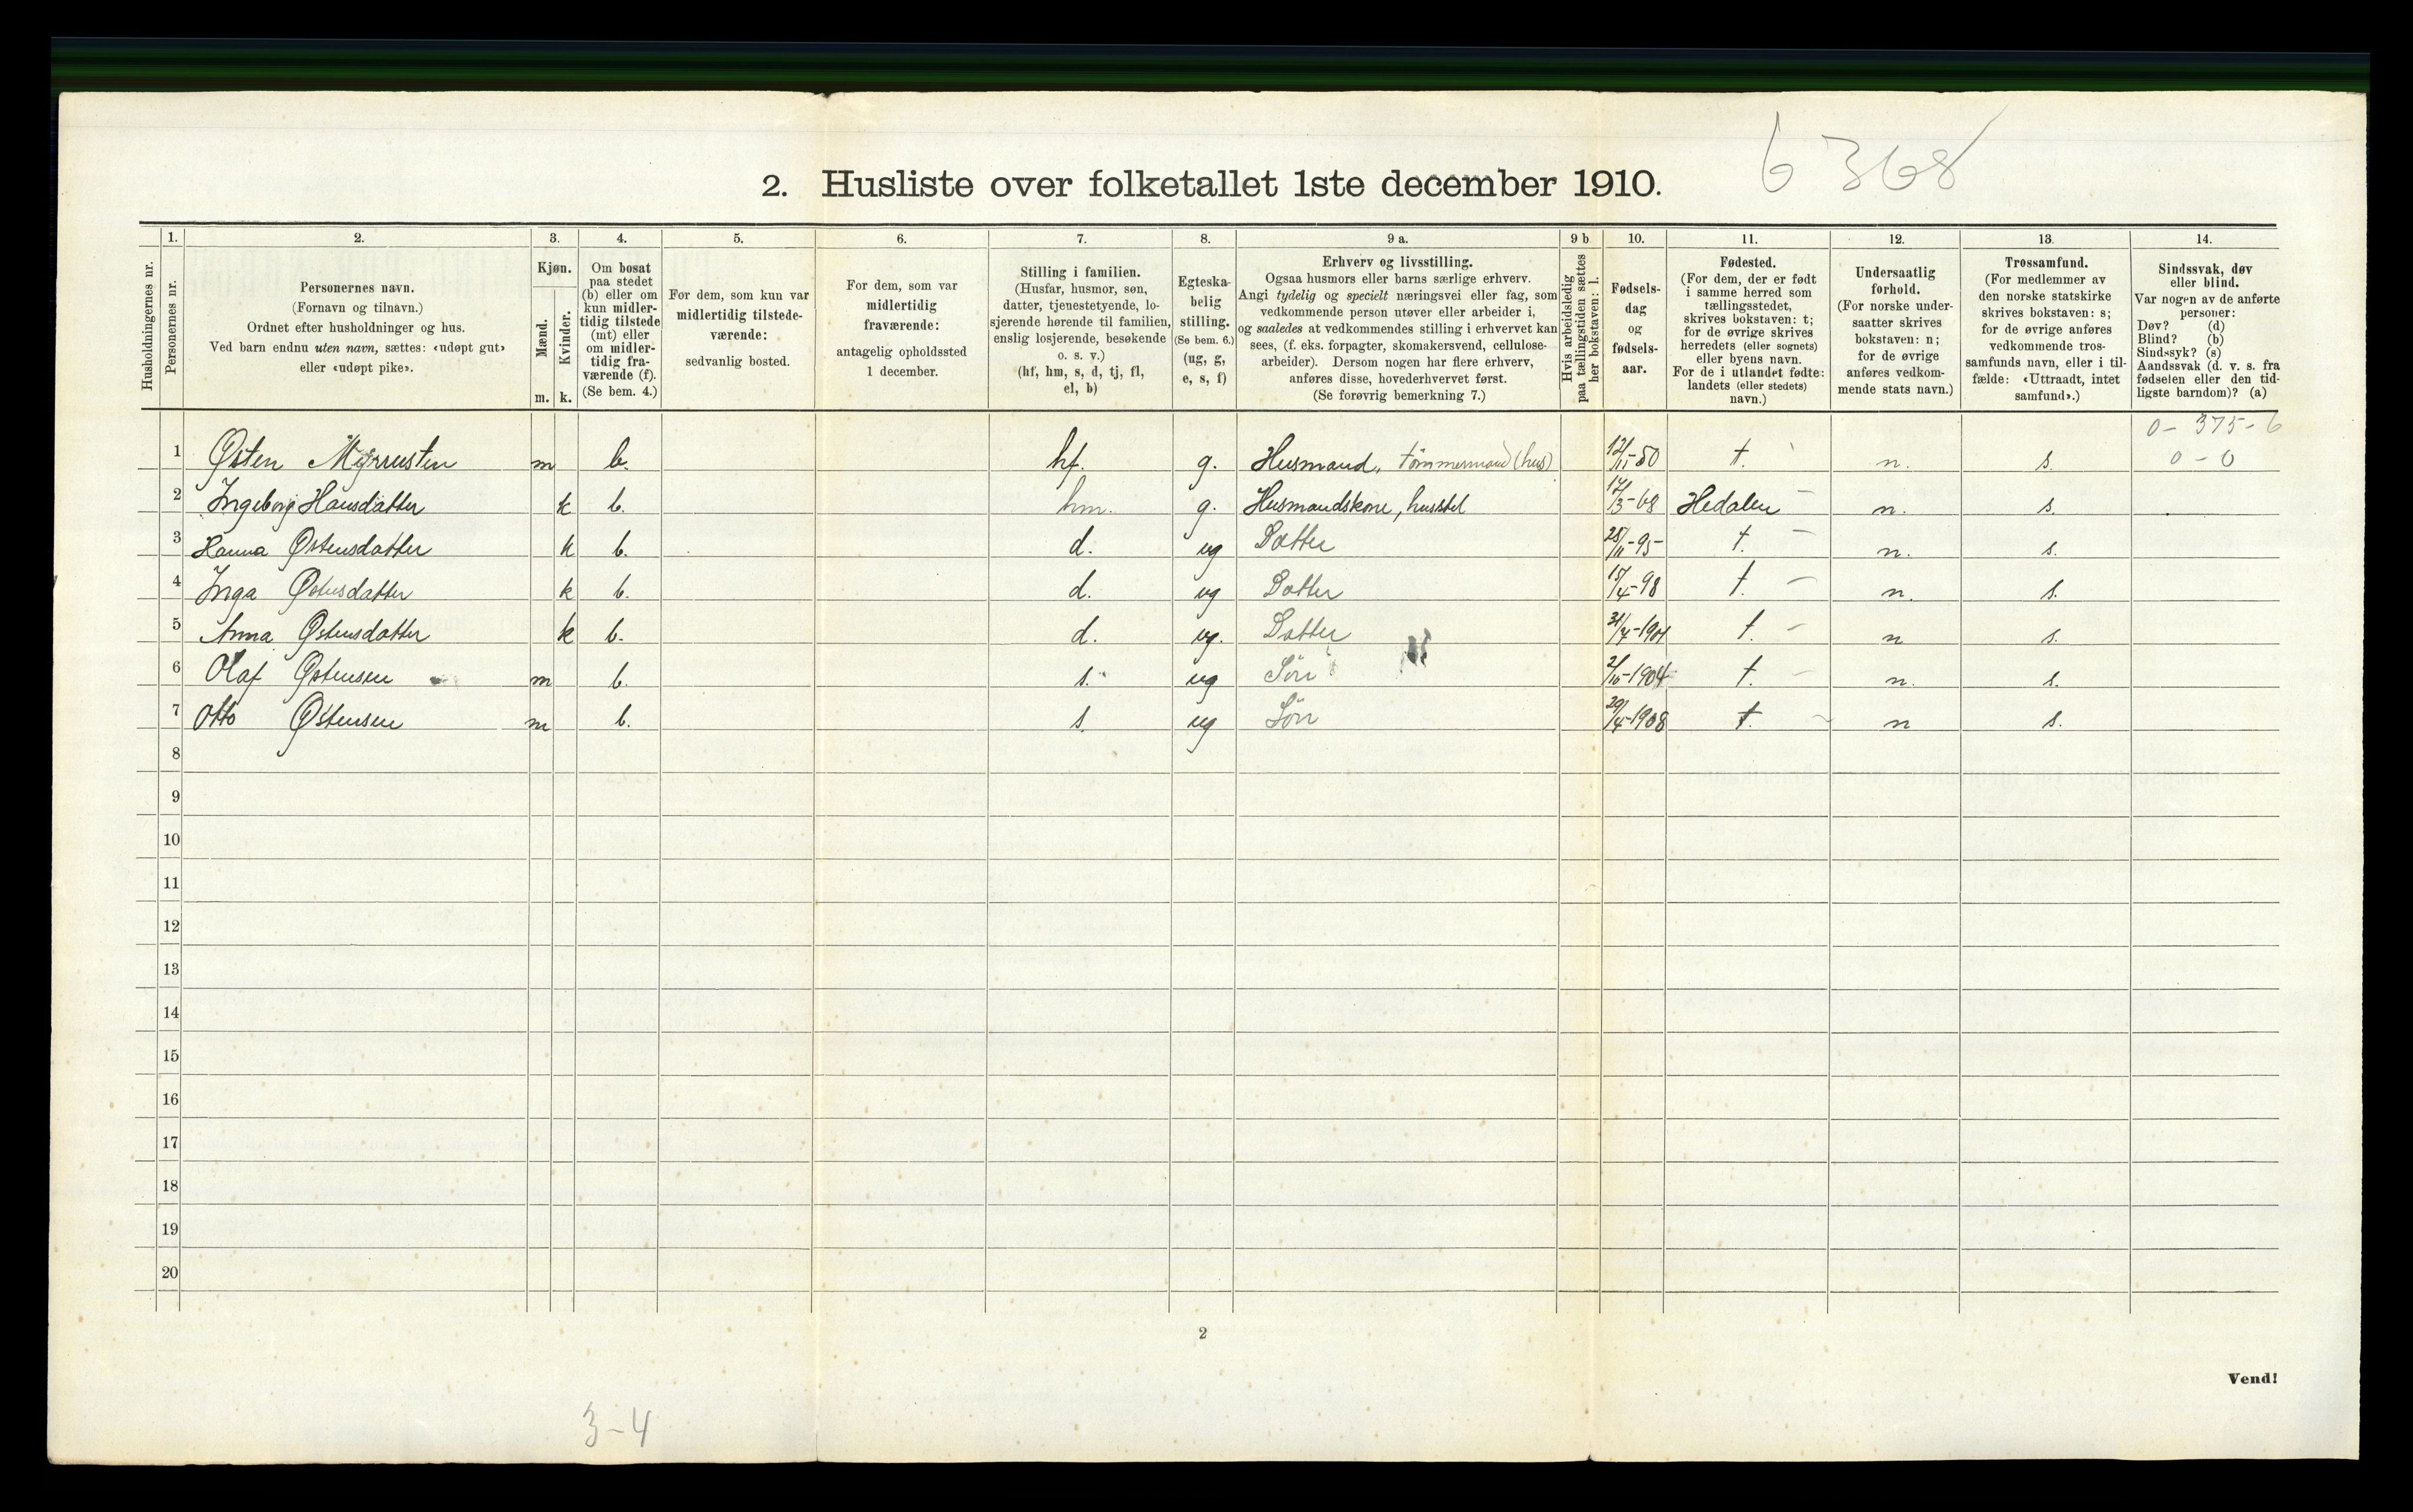 6 368
2. Husliste over folketallet 1ste december 1910.
Husholdningernes nr.
1.
Personernes nr.
2.
Personernes navn.
(Fornavn og tilnavn.)
Ordnet efter husholdninger og hus.
Ved barn endnu uten navn, sættes: «udøpt gut»
eller «udøpt pike».
3.
Kjøn.
Mænd.
Kvinder.
m. k.
4.
Om bosat
paa stedet
(b) eller om
kun midler-
tidig tilstede
(mt) eller
om midler-
tidig fra-
værende (f).
(Se bem. 4.)
5.
For dem, som kun var
midlertidig tilstede-
værende:
sedvanlig bosted.
6.
For dem, som var
midlertidig
fraværende:
antagelig opholdssted
1 december.
7.
Stilling i familien.
(Husfar, husmor, søn,
datter, tjenestetyende, lo-
sjerende hørende til familien,
enslig losjerende, besøkende
o. s. v.)
(hf, hm, s, d, tj, fl,
el, b)
8.
Egteska-
belig
stilling.
(Se bem. 6.)
(ug, g,
e, s, f)
9 a.
Erhverv og livsstilling.
Ogsaa husmors eller barns særlige erhverv.
Angi tydelig og specielt næringsvei eller fag, som
vedkommende person utøver eller arbeider i,
og saaledes at vedkommendes stilling i erhvervet kan
sees, (f. eks. forpagter, skomakersvend, cellulose-
arbeider). Dersom nogen har flere erhverv,
anføres disse, hovederhvervet først.
(Se forøvrig bemerkning 7.)
9 b
Hvis arbeidsledig
paa tællingstiden sættes
her bokstaven: l.
10.
Fødsels-
dag
og
fødsels-
aar.
11.
Fødested.
(For dem, der er født
i samme herred som
tællingsstedet,
skrives bokstaven: t;
for de øvrige skrives
herredets (eller sognets)
eller byens navn.
For de i utlandet fødte:
landets (eller stedets)
navn.)
12.
Undersaatlig
forhold.
(For norske under-
saatter skrives
bokstaven: n;
for de øvrige
anføres vedkom-
mende stats navn.)
13.
Trossamfund.
(For medlemmer av
den norske statskirke
skrives bokstaven: s;
for de øvrige anføres
vedkommende tros-
samfunds navn, eller i til-
fælde: «Uttraadt, intet
samfund».)
14.
Sindssvak, døv
eller blind.
Var nogen av de anførte
personer:
Døv? (d)
Blind? (b)
Sindssyk? (s)
Aandssvak (d. v. s. fra
fødselen eller den tid-
ligste barndom)? (a)
0 - 375 - 6
1 Østen Myrrusten m b. hf. g. Husmand, tømmermand (hus) 12/11-50 t. n. s. 0 - 0
2 Ingeborg Hansdatter k b. hm. g. Husmandskone, husstel 17/3-68 Hedalen n. s.
3 Hanna Østensdatter k b. d. ug Datter 28/11-95 t. n. s.
4 Inga Østensdatter k b. d. ug Datter 15/4-98 t. n. s.
5 Anna Østensdatter k b. d. ug. Datter t. n s.
6 Olaf Østensen m b. s. ug Søn 2/10-1904 t. n. s.
7 Otto Østensen m b. s. ug Søn 29/4-1908 t. n s.
8
9
10
11
12
13
14
15
16
17
18
19
20
2
Vend!
3-4